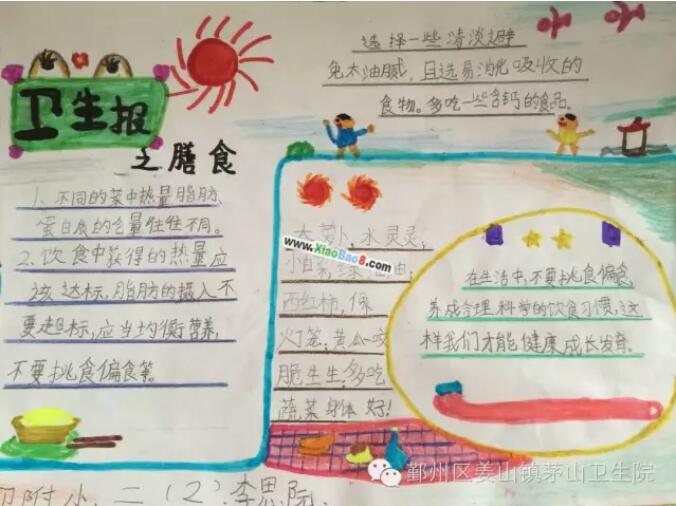 卫生报
之膳食
1、不同的菜中热量脂肪、
蛋白质的含量往往不同。
2、饮食中获得的热量应
该达标,脂肪的摄入不
要超标,应当均衡营养,
不要挑食偏食等。
选择一些清淡避
免太油腻,且选易消化吸收的
食物。多吃一些含钙的食品。
大萝卜,水灵灵;
小白菜,绿油油;
西红柿,像
灯笼;黄瓜咬
脆生生;多吃
蔬菜身体好!
www.XiaoBao8.com
在生活中,不要挑食偏食,
养成合理科学的饮食习惯,这
样我们才能健康成长发育。
附小、二(2)李思
鄞州区姜山镇茅山卫生院